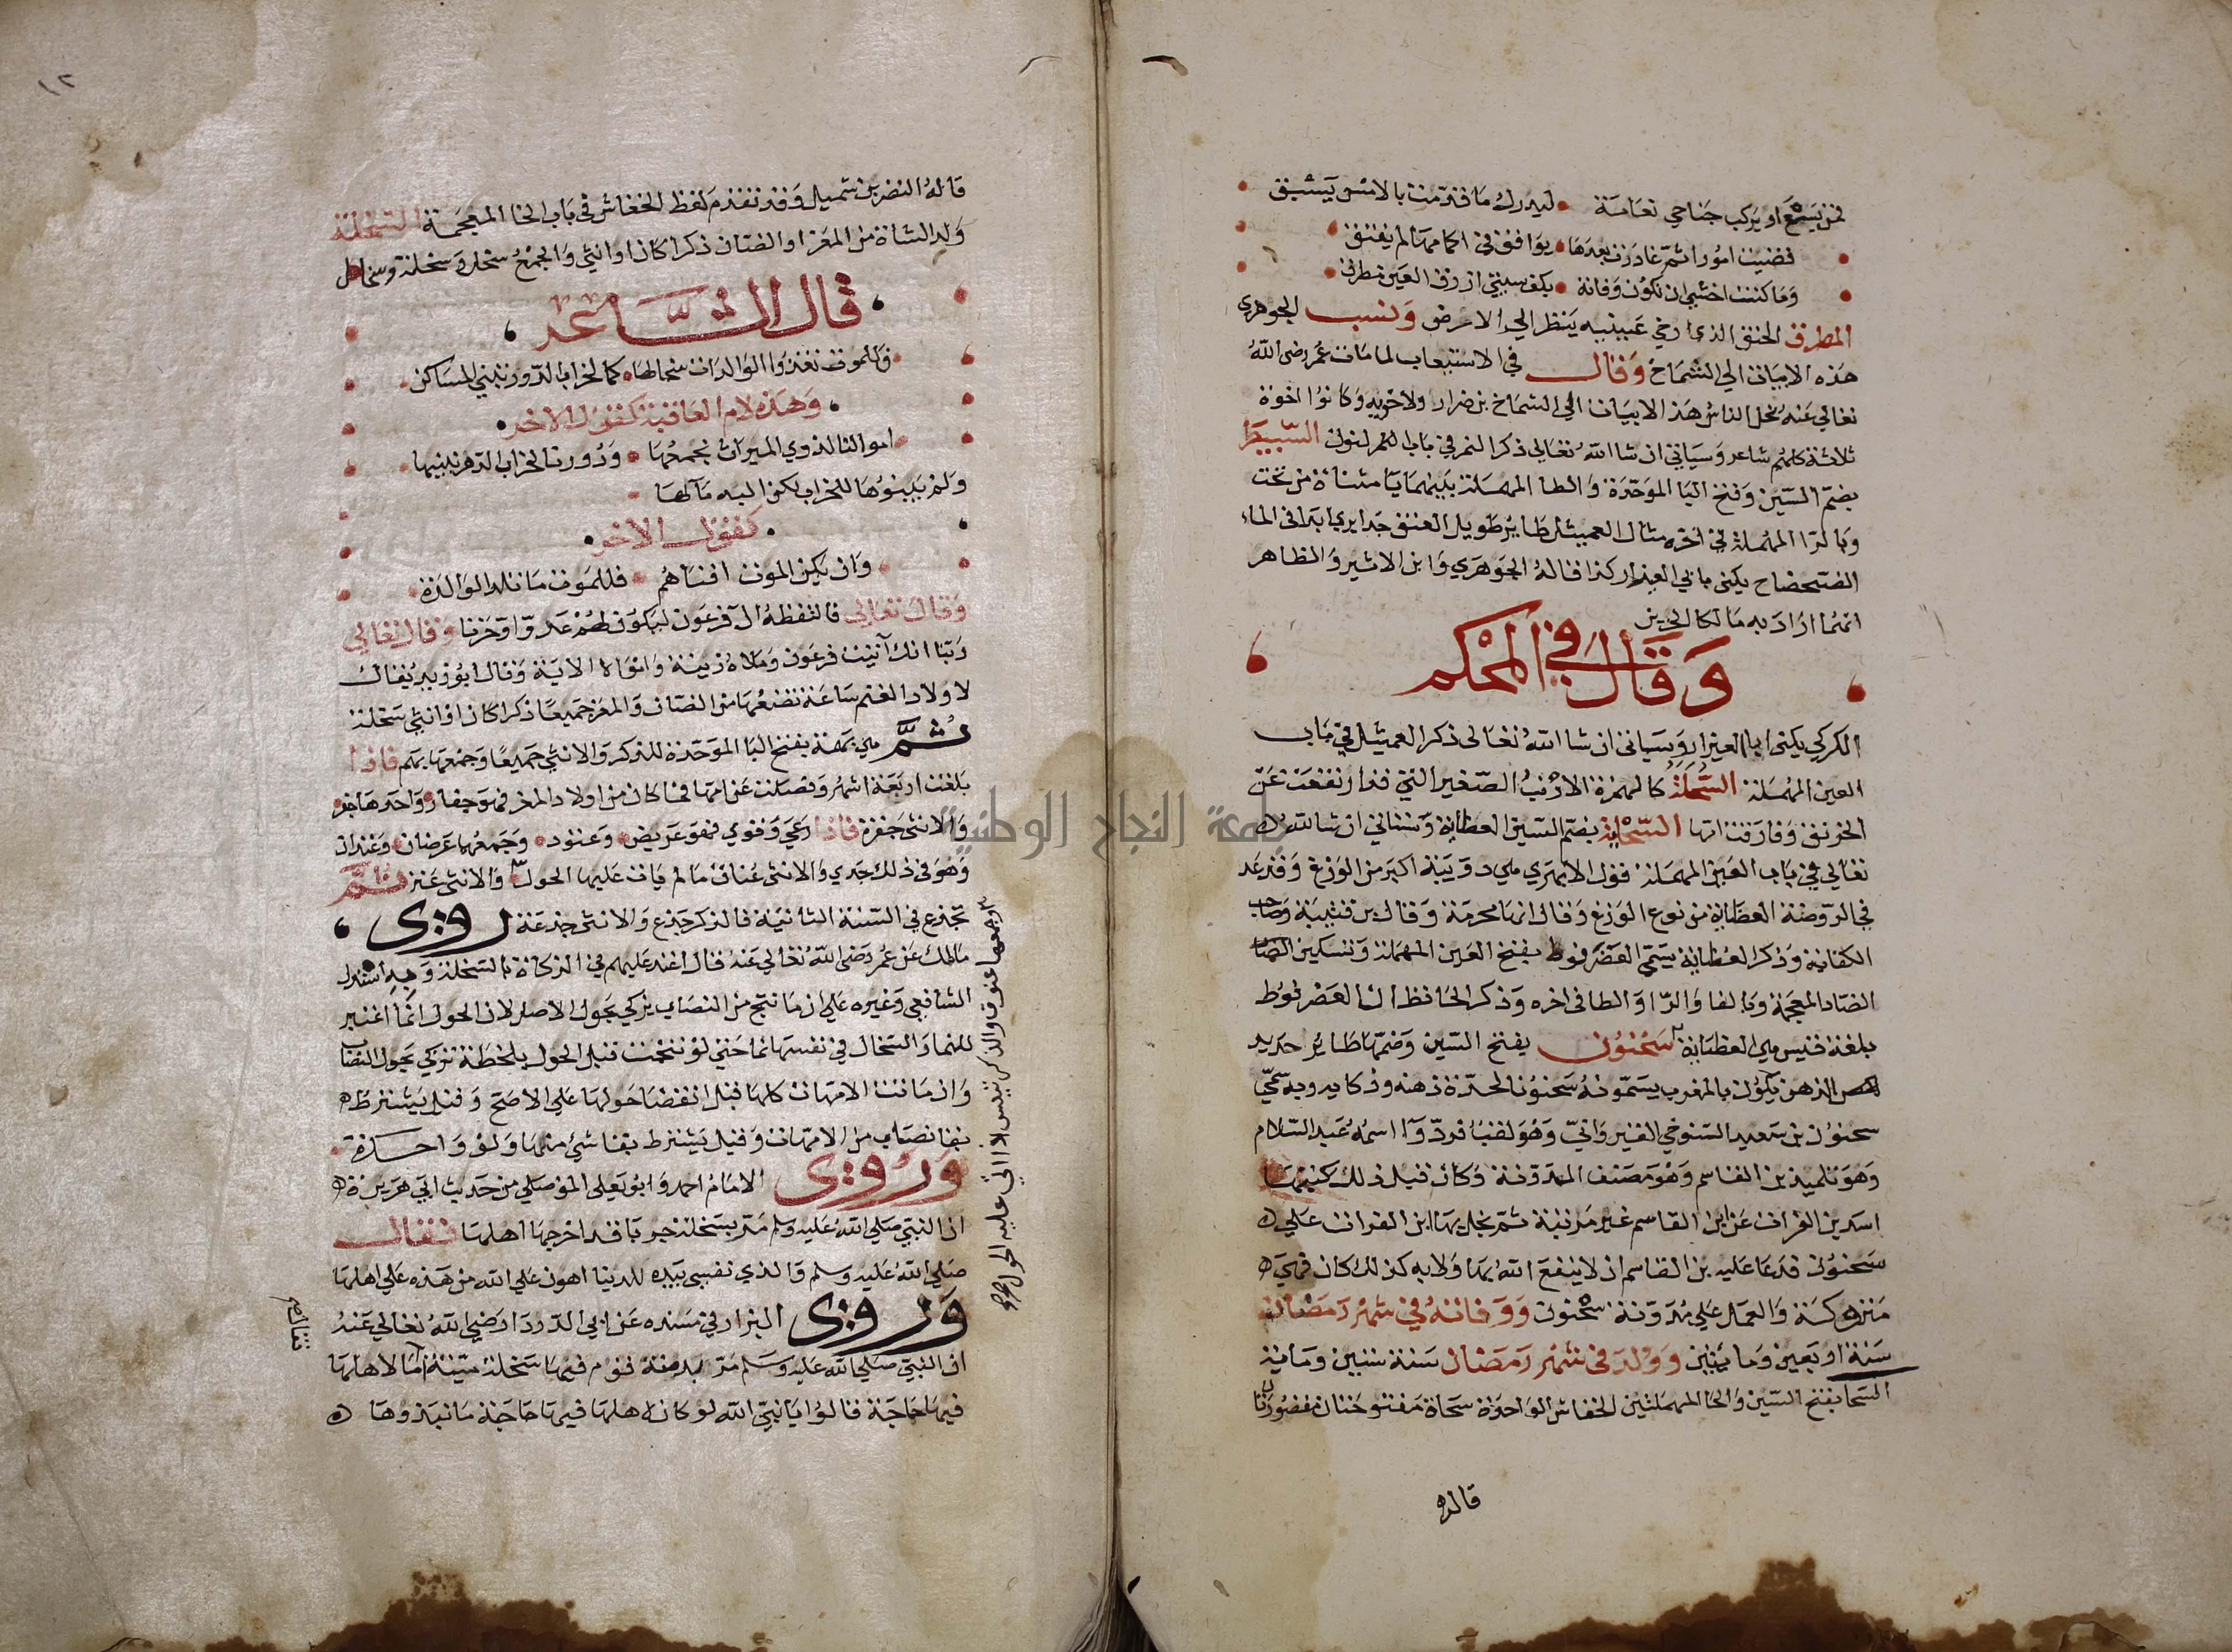 فمن يسع او يركب جناحي نعامة ليدرك ما قدمت بالامس يسبق
قضيت امورا ثم غادرت بعدها بوافق في اكمامها لم يفتق
وما كنت اخشي ان تكون وفاته بكف سبنتي ازرق العين مطرق
المطرق الحنق الذي ارخي عينيه ينظر الي الارض ونسب الجوهري
هذه الابيات الي الشماخ وقال في الاستيعاب لما مات عمر رضي الله
تعالي عنه نحل الناس هذ الابيات الي الشماخ بن ضرار ولاخويه وكانوا اخوة
ثلاثة كلهم شاعر وسياتي ان شا الله تعالي ذكر النمر في باب النون السبيطر
بضم السين وفتح البا الموحدة والطا المهملة بينهما يا مثناة من تحت
وبالرا المهملة في اخره مثال العميثل طاير طويل العنق جدا يري ابدا في الماء
الضحضاح يكني بابي العيزار كذا قاله الجوهري وابن الاثير والظاهر
انهما ارادا به مالكا الحزين
وقال في المحكم
الكركي يكني ابا العيزار وسياتي ان شا الله تعالي ذكر العميثل في باب
العين المهملة السحلة كالهمزة الارنب الصغير التي قد ارتفعت عن
الخرنق وفارقت امها السحلية بضم السين العظاية وستاتي ان شا الله
تعالي في باب العين المهملة قول الازهري هي دويبة اكبر من الوزغ وقد عد
في الروضة العظاية من نوع الوزغ وقال انها محرمة وقال بن قتيبة وصاحب
الكفاية وذكر العظاية يسمي العضرفوط بفتح العين المهملة وتسكين الضا
الضاد المعجمة وبالفا والرا والطا في اخره وذكر الحافظ ان العضرفوط
بلغة قيس هي العظاية سحنون بفتح السين وضمها طاير حديد
الذهن يكون بالمغرب يسمونه سحنونا لحدة ذهنه وذكايه وبه سمي
سحنون بن سعيد التنوخي القيرواني وهو لقب فرد وا اسمه عبد السلام
وهو تلميذ بن القاسم وهو مصنف المدونة وكان قبل ذلك كتبها
اسد بن الفرات عن ابن القاسم غير مرتبة ثم بخل بها ابن الفرات علي
سحنون فدعا عليه بن القاسم ان لا ينفع الله بها ولا به كذلك كان فهي
متروكة والعمل علي مدونة سحنون ووفاته في شهر رمضان
سنة اربعين وماتين وولد في شهر رمضان سنة ستين وماية
السحا بفتح السين والحا المهملتين الخفاش الواحدة سحاة مفتوحتان مقصورتان
قاله
١٢
قاله النضر بن شميل وقد تقدم لفظ الخفاش في باب الخا المعجمة السخلة
ولد الشاة من المعز او الضان ذكرا كان او انثي والجمع سخل وسخلة وسخال
قال الشاعر
فللموت تغذوا الوالدات سخالها كما لخراب الدور تبني المساكن
وهذه لام العاقبة كقول الاخر
اموالنا لذوي الميراث نجمعها ودورنا لخراب الدهر نبنيها
ولم يبنوها للخراب لكن اليه مالها
كقول الاخر
وان يكن الموت افناهم فللموت ما تلد الوالدة
وقال تعالي فالتقطه ال فرعون ليكون لهم عدوا وحزنا وقال تعالي
ربنا انك آتيت فرعون وملاه زينة واموالا الاية وقال ابو زيد يقال
لاولاد الغنم ساعة تضعها من الضان والمعز جميعا ذكرا كان او انثي سخلة
ثم هي بهمة بفتح البا الموحدة للذكر والانثي جميعا وجمعها بهم فاذا
بلغت اربعة اشهر وفصلت عن امها فما كان من اولاد المعز فهو جفار واحدها جفر
والانثي جفرة فاذا رعي وقوي فهو عريض وعتود وجمعهما عرضان وعتدان
وهو في ذلك جدي والانثي عناق ما لم يات عليها الحول والانثي عنز ثم
تجذع في السنة الثانية فالذكر جذع والانثي جذعة روي
مالك عن عمر رضي الله تعالي عنه قال اعتد عليهم في الزكاة بالسخلة وبه استدل
الشافعي وغيره علي ان ما نتج من النصاب يزكي بحول الاصل لان الحول انما اعتبر
للنما والسخال في نفسها نما حتي لو نتجت قبل الحول بلحظة تزكي بحول النصاب
وان ماتت الامهات كلها قبل انقضا حولها علي الاصح وقيل يشترط
بقا نصاب من الامهات وقيل يشترط بقا شئ منها ولو واحدة
وروي الامام احمد وابو يعلي الموصلي من حديث ابي هريرة
ان النبي صلي الله عليه وسلم مر بسخلة جربا قد اخرجها اهلها فقال
صلي الله عليه وسلم والذي نفسي بيده للدنيا اهون علي الله من هذه علي اهلها
وروي البزار في مسنده عن ابي الدردا رضي الله تعالي عنه
ان النبي صلي الله عليه وسلم مر بدمنة قوم فيها سخلة ميتة اما لاهلها
فيها حاجة قالوا يا نبي الله لو كان لاهلها فيها حاجة ما نبذوها
وجمعها عنوق والذكر تيس اذا اتي عليه الحول
جامعة النجاح الوطنية